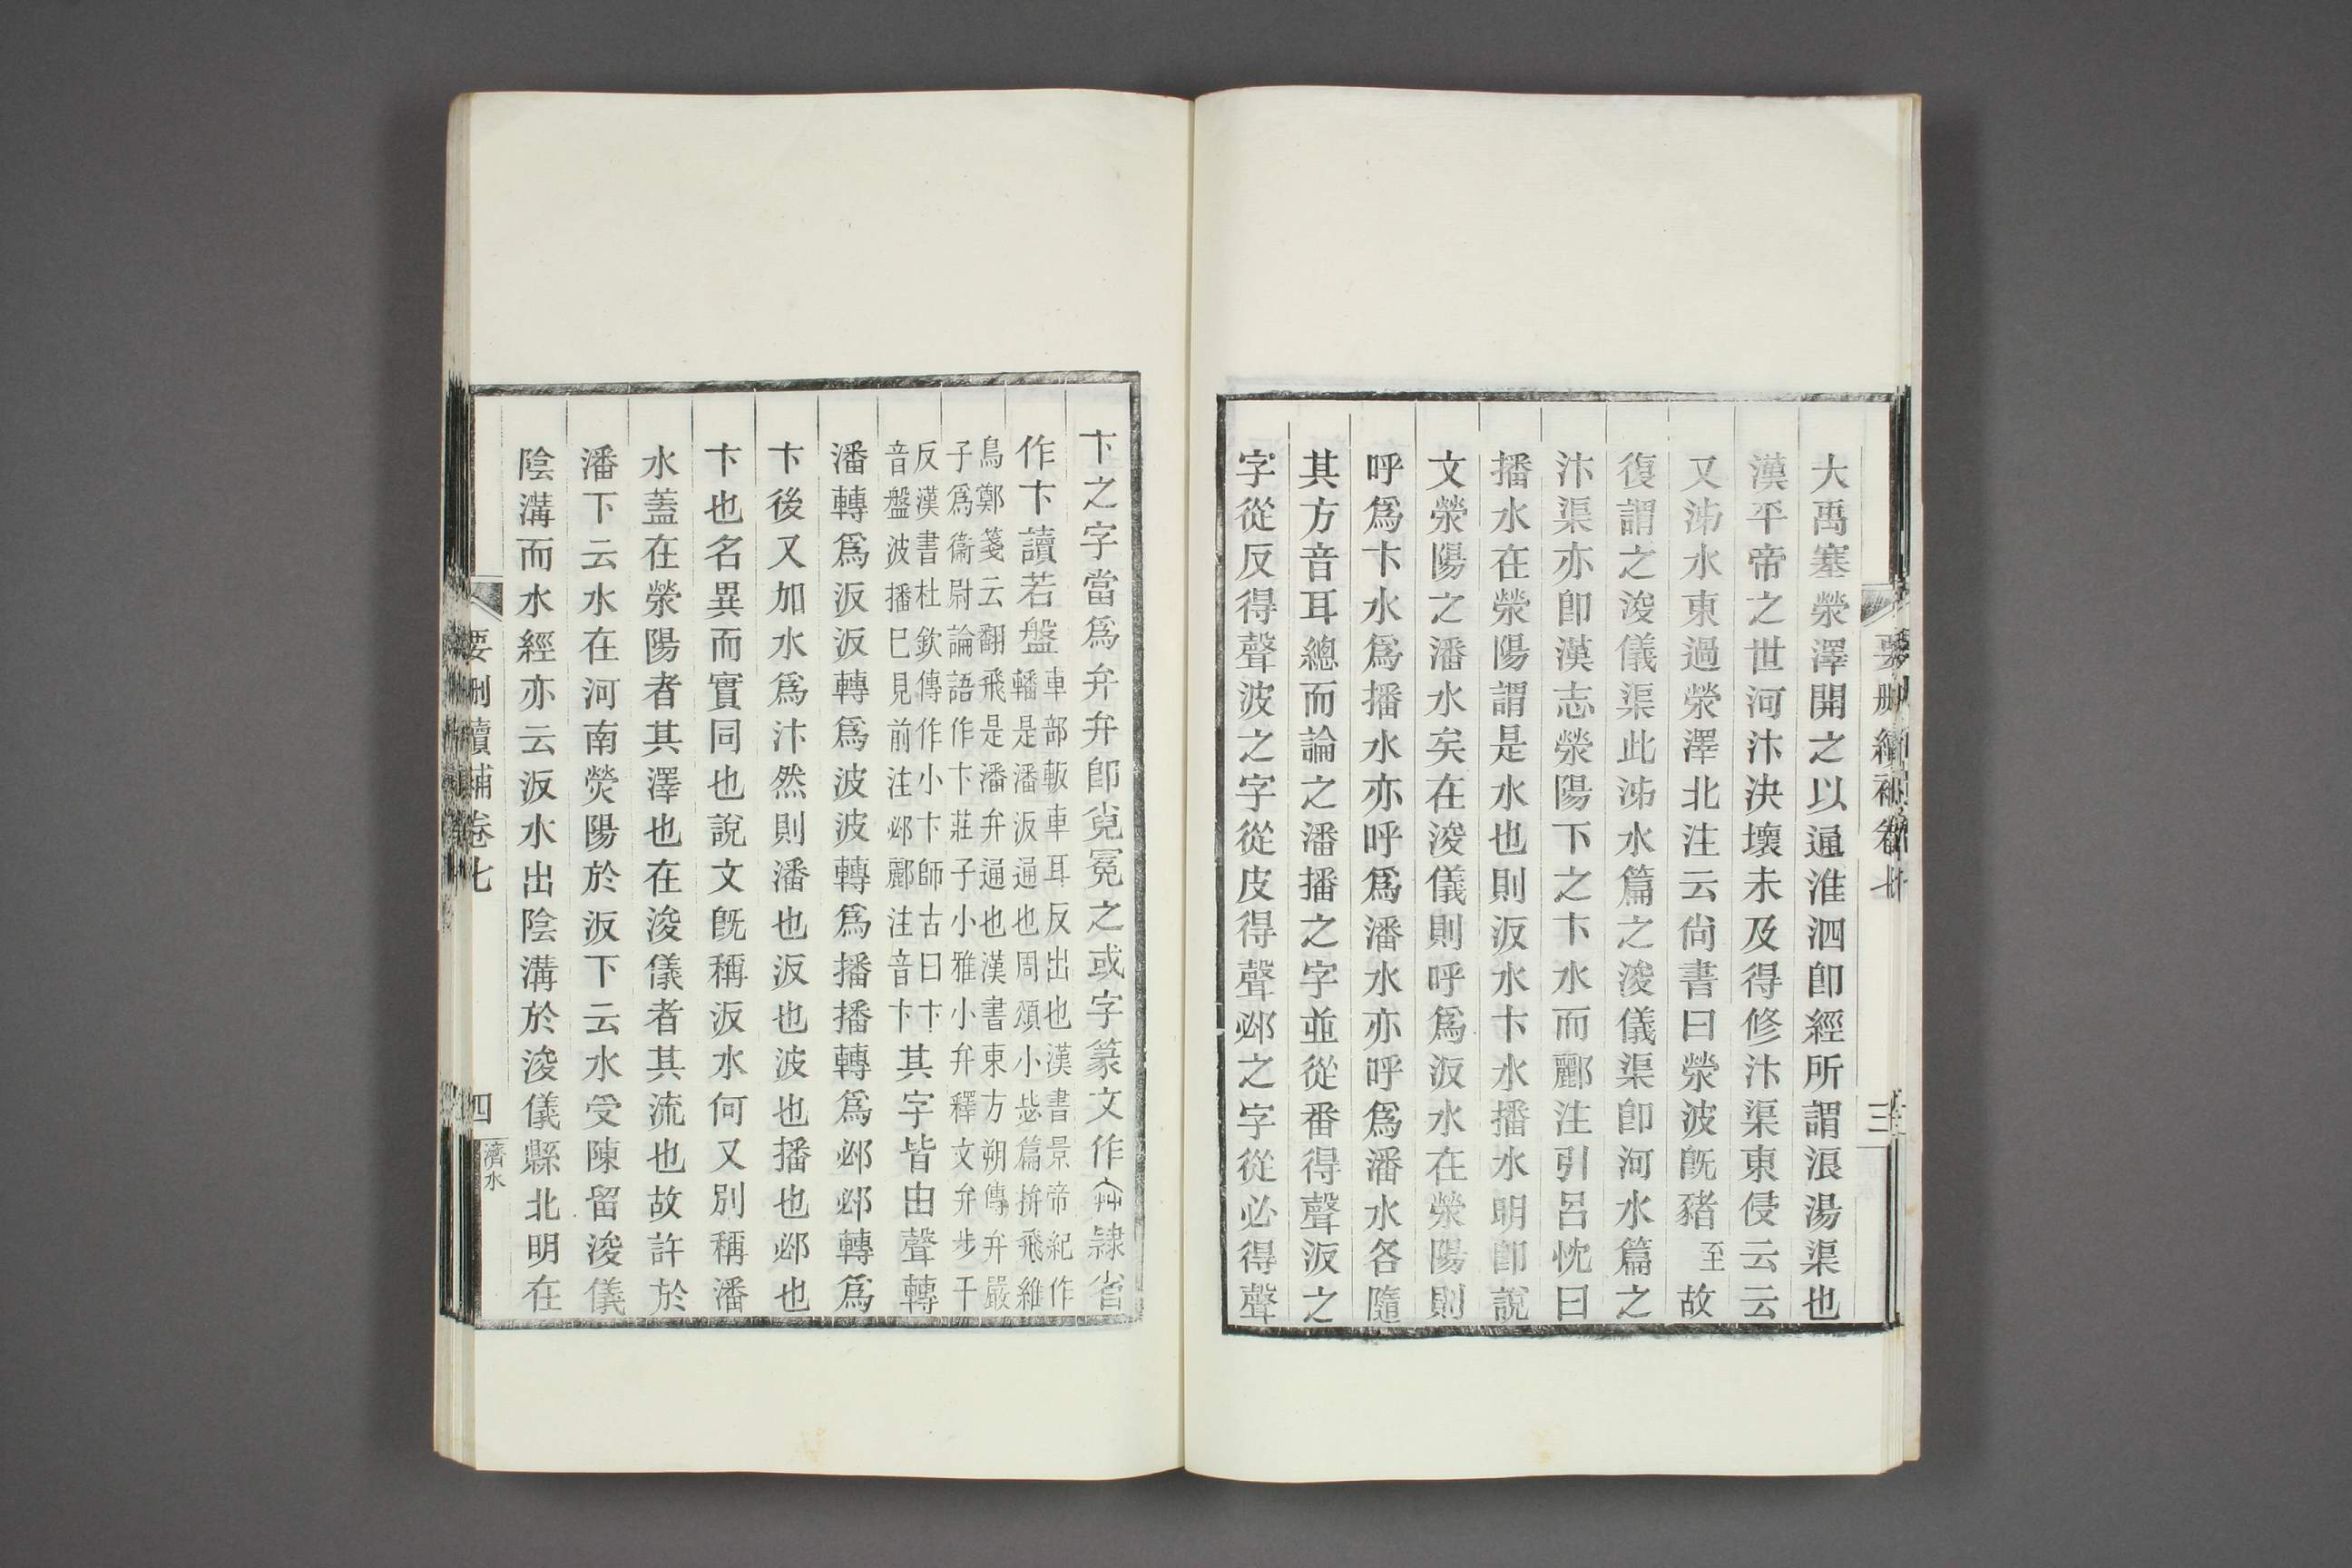 大禹塞滎澤開之以通淮泗卽經所謂浪湯渠也
漢平帝之世河汴決壞未及得修汴渠東侵云云
又泲水東過滎澤北注云尙書曰滎波旣豬至故
復謂之浚儀渠此泲水篇之浚儀渠卽河水篇之
汴渠亦卽漢志滎陽下之卞水而酈注引呂忱曰
播水在滎陽謂是水也則汳水卞水播水明卽說
文滎陽之潘水矣在浚儀則呼爲汳水在滎陽則
呼爲卞水爲播水亦呼爲潘水亦呼爲潘水各隨
其方音耳總而論之潘播之字並從番得聲汳之
字從反得聲波之字從皮得聲邲之字從必得聲
要刪續補卷七
三
卞之字當爲弁弁卽皃冕之或字篆文作隸省
作卞讀若盤車部軬車耳反出也漢書景帝紀作
轓是潘汳通也周頌小毖篇拚飛維
鳥鄭箋云翻飛是潘弁通也漢書東方朔傳弁嚴
子爲衞尉論語作卞莊子小雅小弁釋文弁步干
反漢書杜欽傳作小卞師古曰卞
音盤波播已見前注邲酈注音卞其字皆由聲轉
潘轉爲汳汳轉爲波波轉爲播播轉爲邲邲轉爲
卞後又加水爲汴然則潘也汳也波也播也邲也
卞也名異而實同也說文旣稱汳水何又別稱潘
水蓋在滎陽者其澤也在浚儀者其流也故許於
潘下云水在河南熒陽於汳下云水受陳留浚儀
陰溝而水經亦云汳水出陰溝於浚儀縣北明在
要刪續補卷七
四
濟水